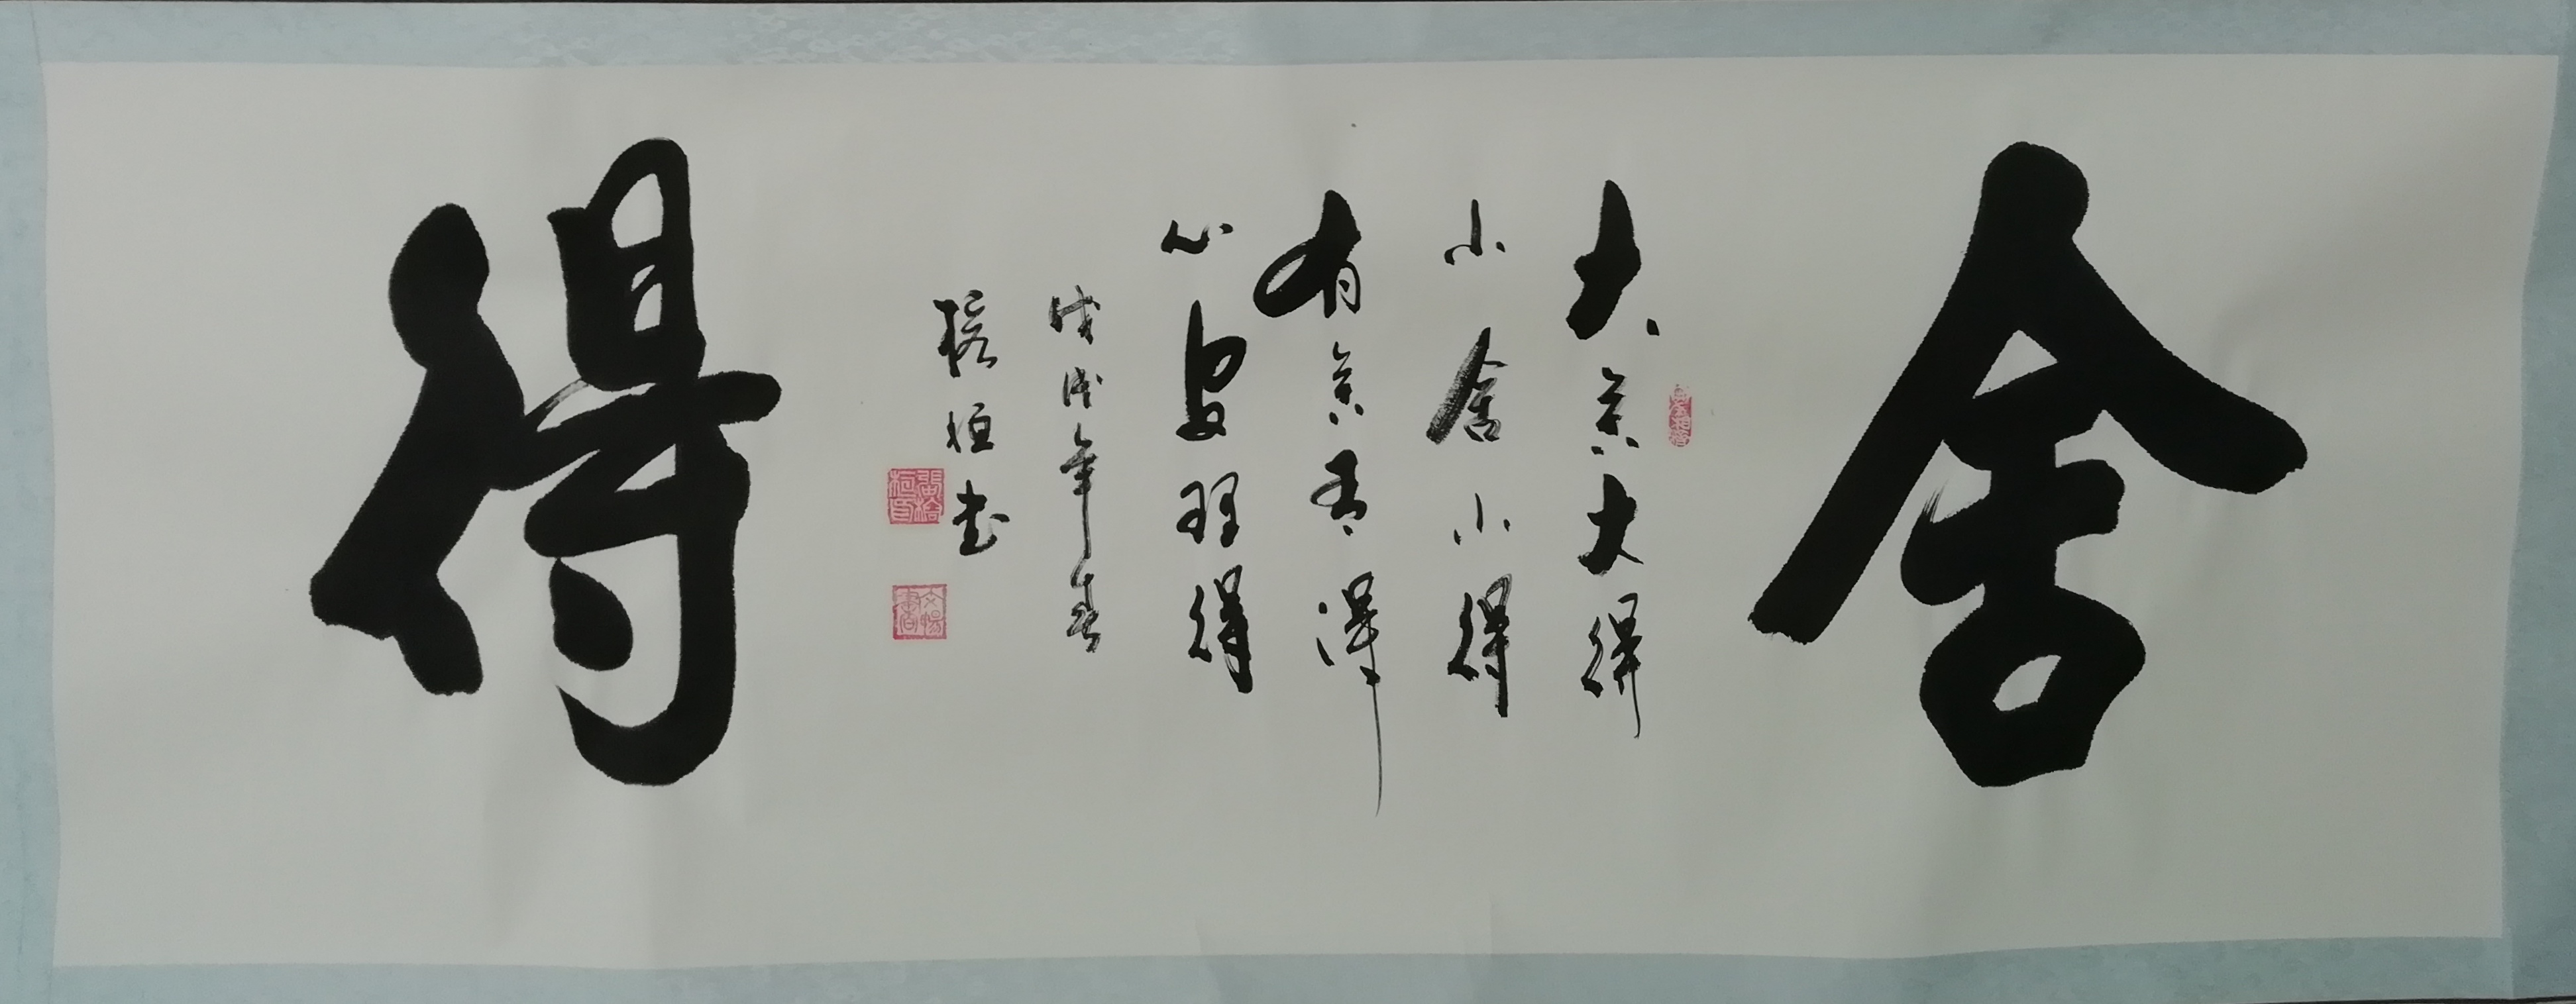 舍
大舍大得
小舍小得
有舍有得
心安理得
戊戌年春
恒书
得